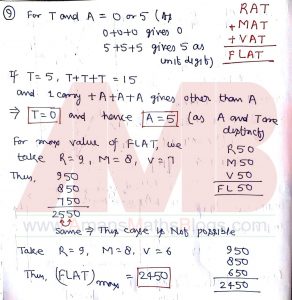 ⑨ For T and A = 0 or 5 (As
0+0+0 gives 0
5+5+5 gives 5 as
unit digit)
RAT
+MAT
+VAT
FLAT
If T=5, T+T+T = 15
and 1 carry + A+A+A gives other than A
⇒ T=0 and hence A=5 (as A and T are
distinct)
For max value of FLAT, we
take R=9, M=8, V=7
R50
M50
V50
FL50
Thus, 950
850
750
2550
Same ⇒ This case is Not possible
Take R=9, M=8, V=6
950
850
650
2450
Thus, (FLAT)max = 2450